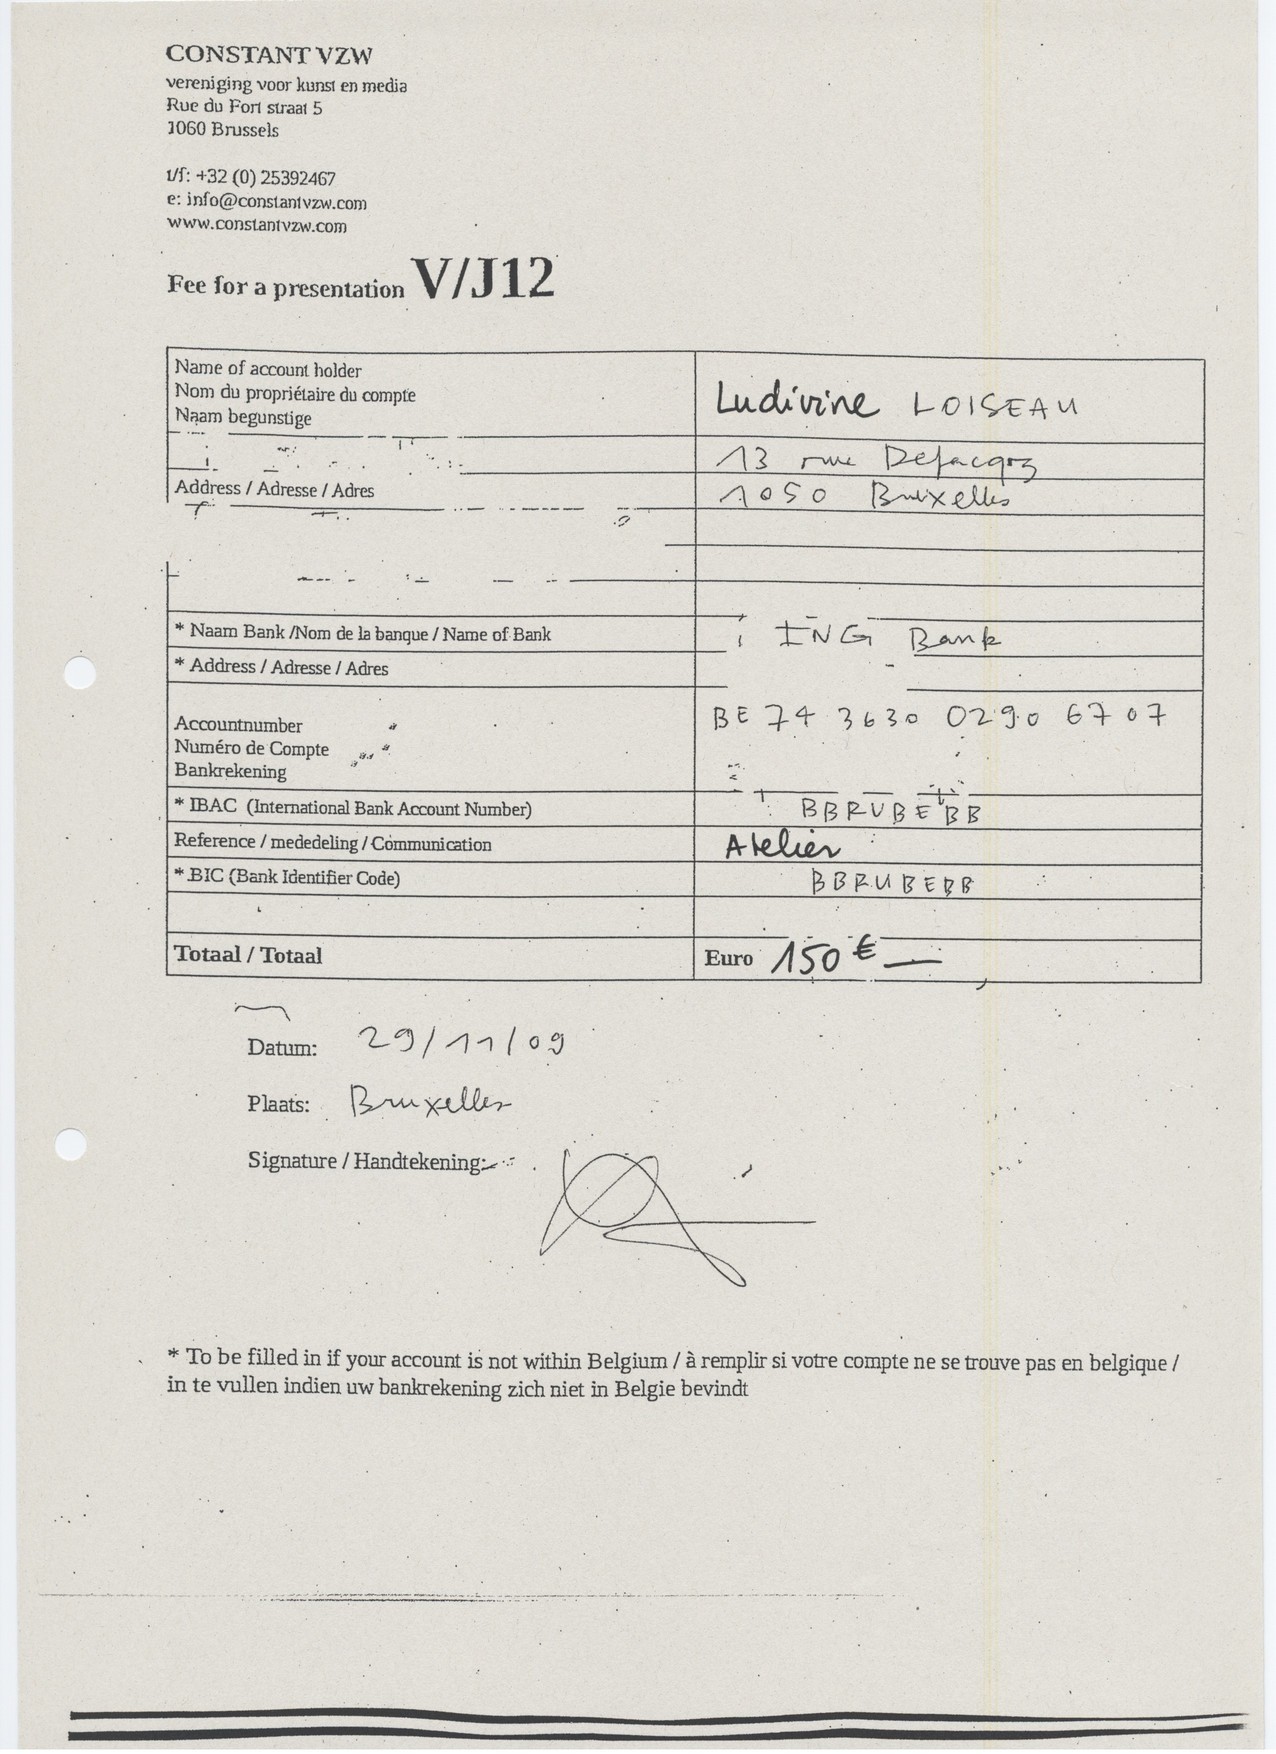 CONSTANT VZW
vereniging voor kunst en media
Rue du Fort straat 5
1060 Brussels
t/f: +32 (0) 25392467
e: info@constantvzw.com
www.constantvzw.com
Fee for a presentation V/J12
Name of account holder
Nom du propriétaire du compte
Naam begunstige
Ludivine LOISEAU
13 rue Defacqz
Address / Adresse / Adres
1050 Bruxelles
* Naam Bank /Nom de la banque / Name of Bank
ING Bank
* Address / Adresse / Adres
Accountnumber
Numéro de Compte
Bankrekening
BE 74 3630 0290 6707
* IBAC (International Bank Account Number)
BBRUBEBB
Reference / mededeling / Communication
Atelier
* BIC (Bank Identifier Code)
BBRUBEBB
Totaal / Totaal
Euro 150 €
Datum: 29/11/09
Plaats: Bruxelles
Signature / Handtekening:
* To be filled in if your account is not within Belgium / à remplir si votre compte ne se trouve pas en belgique /
in te vullen indien uw bankrekening zich niet in Belgie bevindt